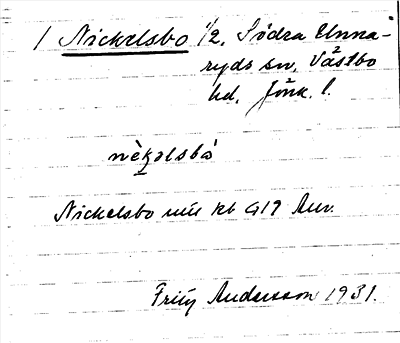 1 Nickelsbo 1/2, Södra Unna-
ryds sn, Västbo
hd, Jönk. l.
nèkəlsbó
Nickelsbo kb 417 Anv.
Fritz Andersson 1931.